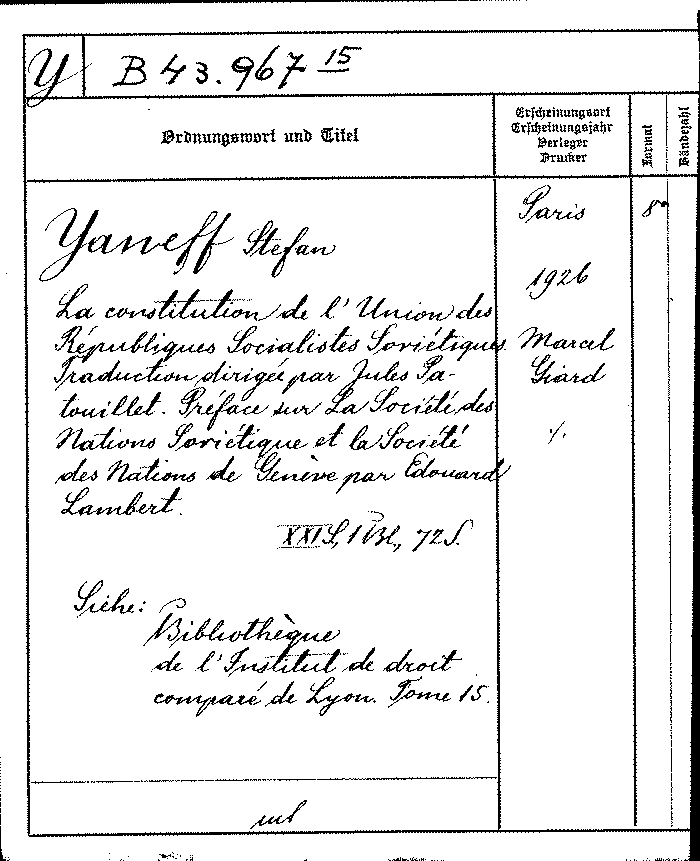 Y B 43.967 15
Ordnungswort und Titel
Erscheinungsort
Erscheinungsjahr
Verleger
Drucker
Format
Bändezahl
Yaneff Stefan
La constitution de l'Union des
Républiques Socialistes Soviétiques.
Traduction dirigée par Jules Pa-
touillet. Préface sur La Société des
Nations Soviétique et la Société
des Nations de Genève par Edouard
Lambert.
XXI S., 1 Bl., 72 S.
Siehe:
Bibliothèque
de l'Institut de droit
comparé de Lyon. Tome 15.
Paris
1926
Marcel
Giard
./.
8°